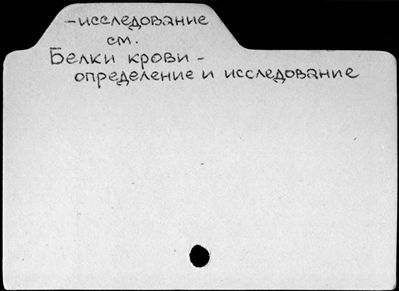 -исследование
см.
Белки крови -
определение и исследование